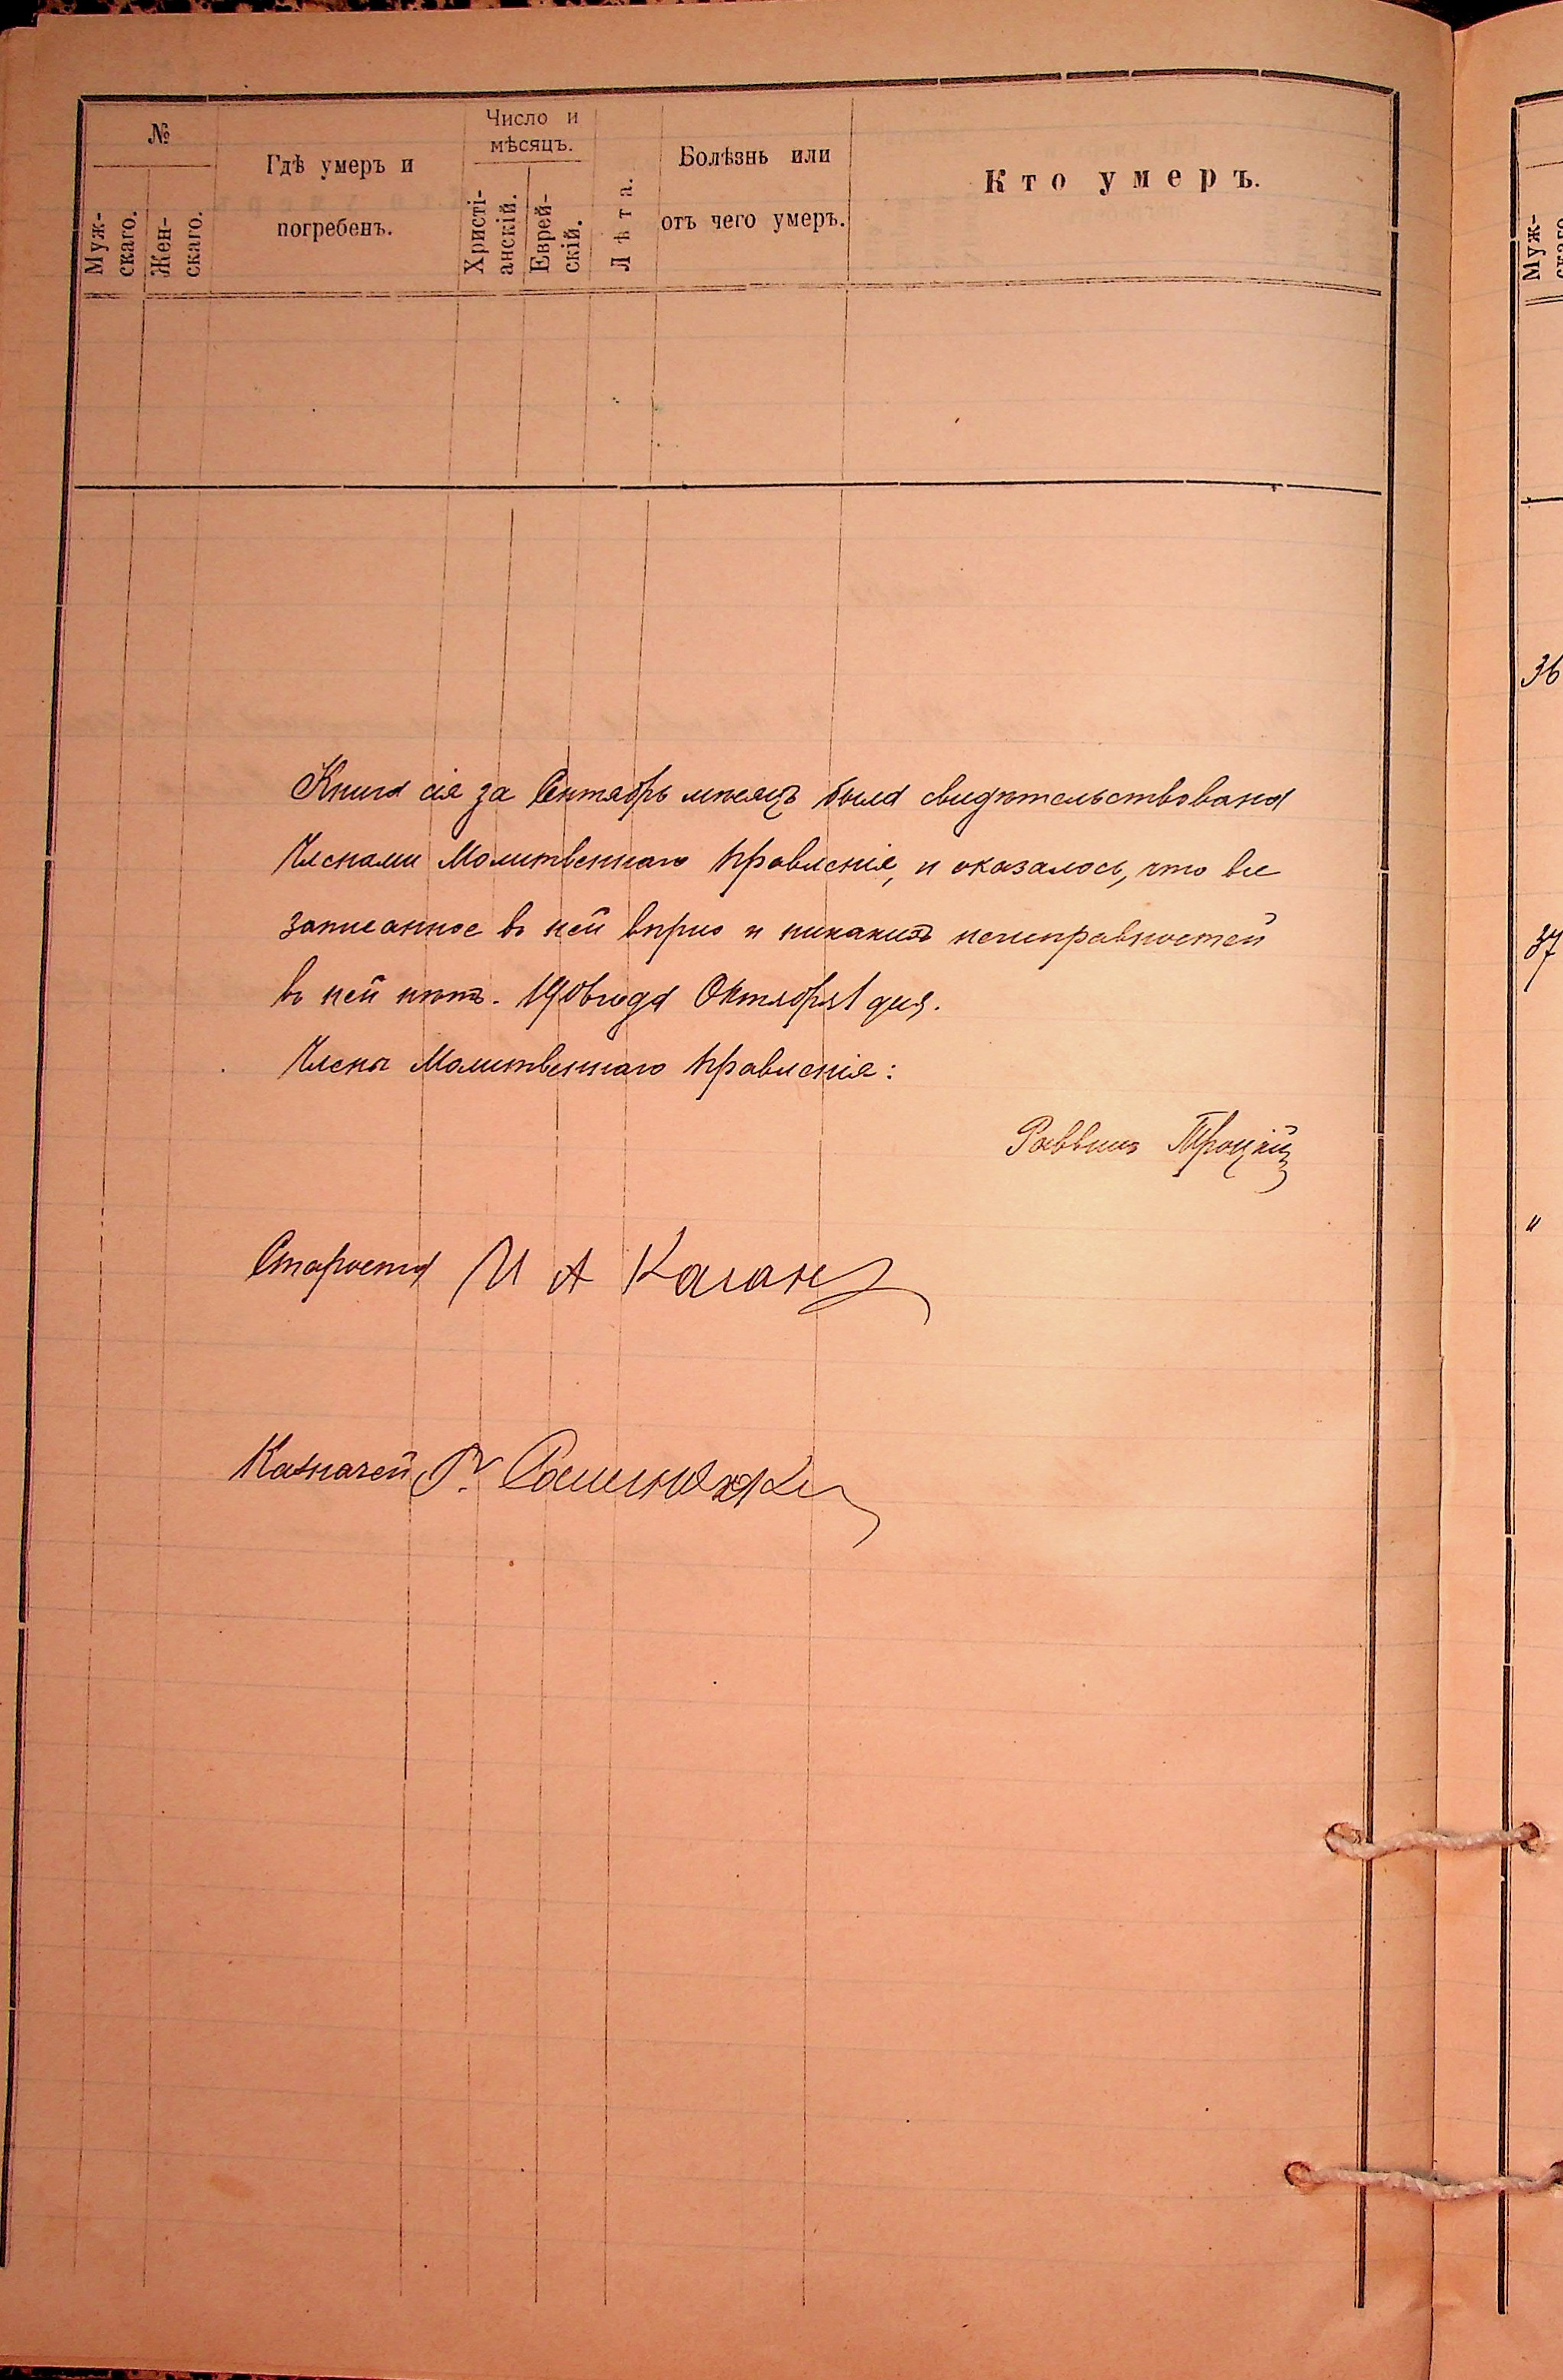 №
Муж-
скаго.
Жен-
скаго.
Гдѣ умеръ и
погребенъ.
Число и
мѣсяцъ.
Христі-
анскій.
Еврей-
скій.
Лѣта.
Болѣзнь или
отъ чего умеръ.
Кто умеръ.
Книга сія за Сентябрь мѣсяцъ была свидѣтельствована
Членами Молитвеннаго Правленія, и оказалось, что все
записанное въ ней вѣрно и никакихъ неисправностей
въ ней нѣтъ. 1906 года Октября 1 дня.
Члены Молитвеннаго Правленія:
Раввинъ Троцкій
Староста И А Каганъ
Казначей Р.
Муж-
скаго
36
37
"